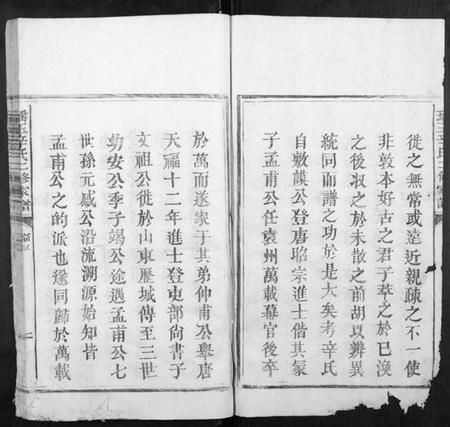 徙之無常或遠近親疎之不一使
非敦本好古之君子萃之於已渙
之後收之於未散之前胡以辨異
統同而譜之功於是大矣考辛氏
自敷謨公登唐昭宗進士偕其家
子孟甫公任袁州萬載幕官後卒
於萬而遂家于其弟仲甫公舉唐
天福十二年進士登吏部尚書子
文祖公徙於山東歷城傳至三世
幼安公季子竭公途遇孟甫公七
世孫元感公沿流溯源始知皆
孟甫公之的派也遂同歸於萬載
辛氏二修家譜